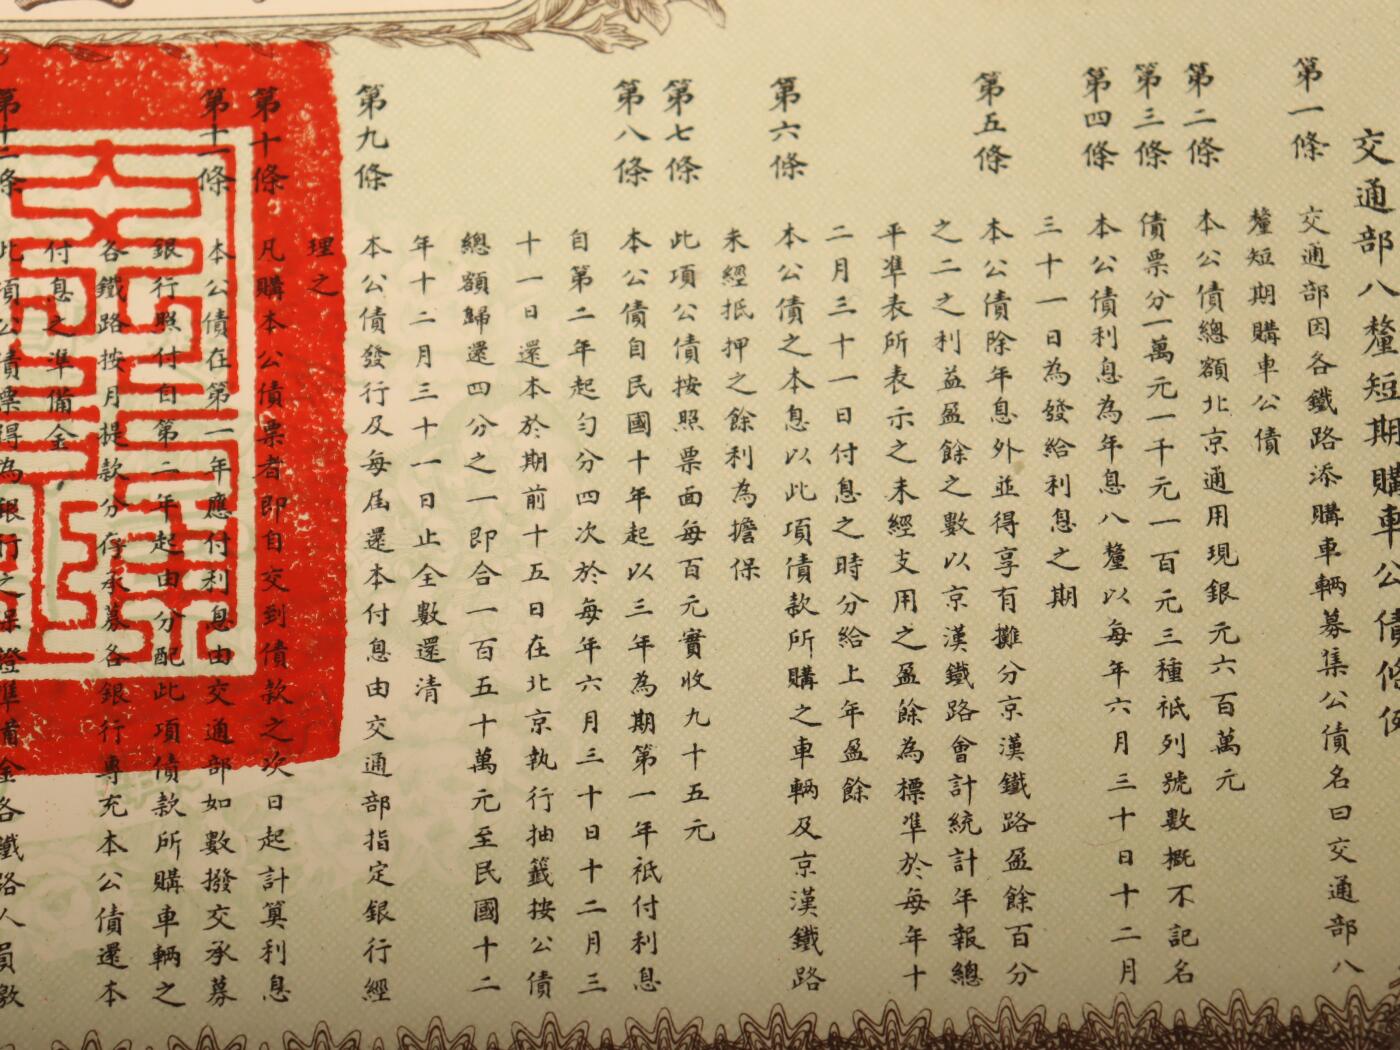 交通部八釐短期購車公債條例
第一條 交通部因各鐵路添購車輛募集公債名曰交通部八
釐短期購車公債
第二條 本公債總額北京通用現銀元六百萬元
第三條 債票分一萬元一千元一百元三種祇列號數概不記名
第四條 本公債利息為年息八釐以每年六月三十日十二月
三十一日為發給利息之期
第五條 本公債除年息外並得享有攤分京漢鐵路盈餘百分
之二之利益盈餘之數以京漢鐵路會計統計年報總
平準表所表示之未經支用之盈餘為標準於每年十
二月三十一日付息之時分給上年盈餘
第六條 本公債之本息以此項債款所購之車輛及京漢鐵路
未經抵押之餘利為擔保
第七條 此項公債按照票面每百元實收九十五元
第八條 本公債自民國十年起以三年為期第一年祇付利息
自第二年起勻分四次於每年六月三十日十二月三
十一日還本於期前十五日在北京執行抽籤按公債
總額歸還四分之一即合一百五十萬元至民國十二
年十二月三十一日止全數還清
第九條 本公債發行及每屆還本付息由交通部指定銀行經
理之
第十條 凡購本公債票者即自交到債款之次日起計算利息
第十一條 本公債在第一年應付利息由交通部如數撥交承募
銀行照付自第二年起由分配此項債款所購車輛之
各鐵路按月提款分存承募各銀行專充本公債還本
付息之準備金
第十二條 此項公債票得為銀行之保證準備金各鐵路人員繳